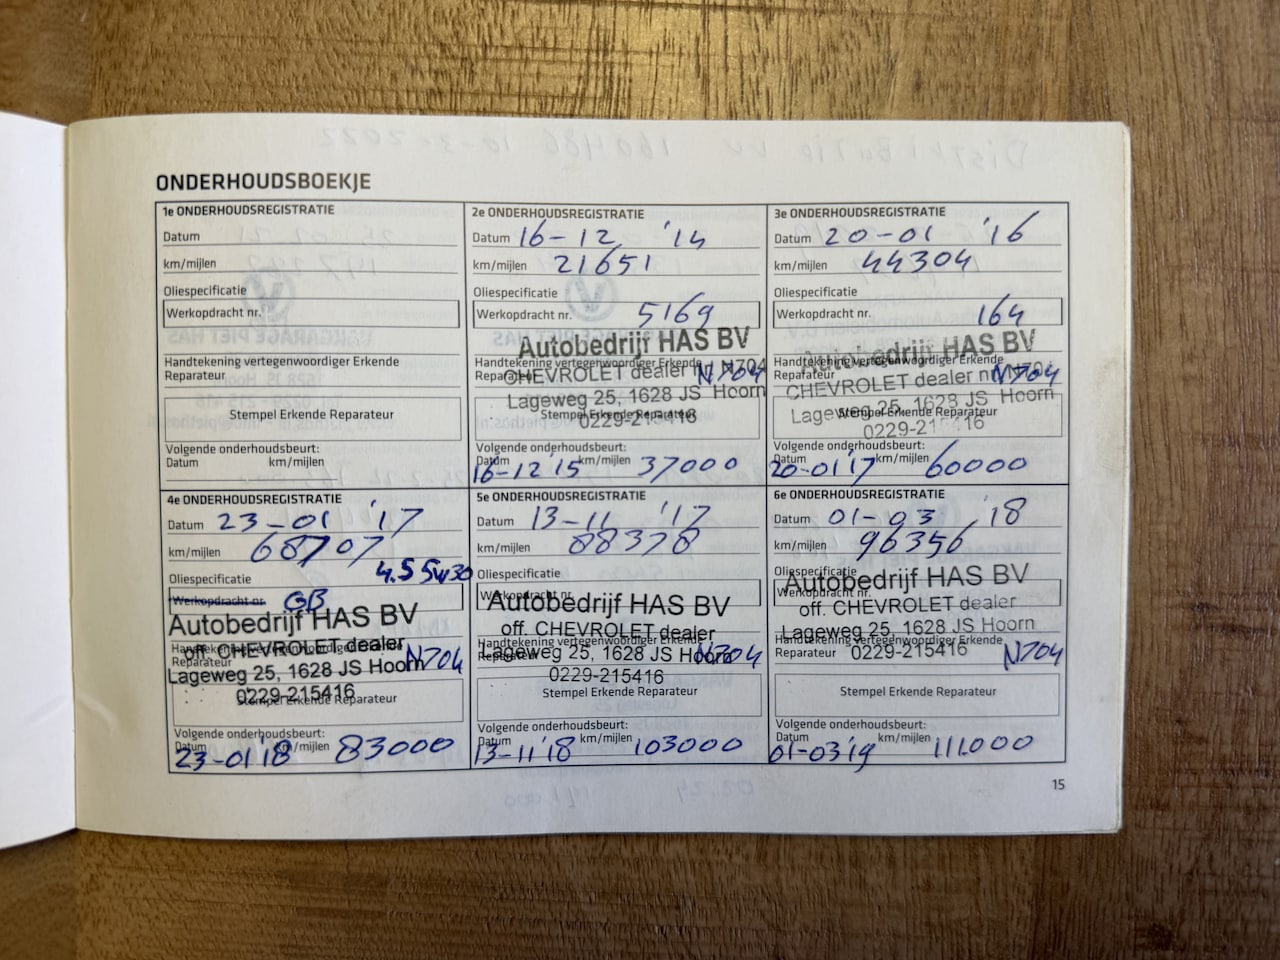 ONDERHOUDSBOEKJE
1e ONDERHOUDSREGISTRATIE
Datum
km/mijlen
Oliespecificatie
Werkopdracht nr.
Handtekening vertegenwoordiger Erkende
Reparateur
Stempel Erkende Reparateur
Volgende onderhoudsbeurt:
Datum km/mijlen
2e ONDERHOUDSREGISTRATIE
Datum 16-12 '14
km/mijlen 21651
Oliespecificatie
Werkopdracht nr. 5169
Autobedrijf HAS BV
Handtekening vertegenwoordiger Erkende
Reparateur N704
CHEVROLET dealer nr. N704
Lageweg 25, 1628 JS Hoorn
Stempel Erkende Reparateur
0229-215416
Volgende onderhoudsbeurt:
Datum 16-12'15 km/mijlen 37000
3e ONDERHOUDSREGISTRATIE
Datum 20-01 '16
km/mijlen 44304
Oliespecificatie
Werkopdracht nr. 164
Autobedrijf HAS BV
Handtekening vertegenwoordiger Erkende
Reparateur N704
CHEVROLET dealer nr. N704
Lageweg 25, 1628 JS Hoorn
Stempel Erkende Reparateur
0229-215416
Volgende onderhoudsbeurt:
Datum 20-01'17 km/mijlen 60000
4e ONDERHOUDSREGISTRATIE
Datum 23-01 '17
km/mijlen 68707
Oliespecificatie 4.5 5w30
Werkopdracht nr. GB
Autobedrijf HAS BV
off. CHEVROLET dealer
Handtekening vertegenwoordiger Erkende
Reparateur N704
Lageweg 25, 1628 JS Hoorn
0229-215416
Stempel Erkende Reparateur
Volgende onderhoudsbeurt:
Datum 23-01'18 km/mijlen 83000
5e ONDERHOUDSREGISTRATIE
Datum 13-11 '17
km/mijlen 88378
Oliespecificatie
Werkopdracht nr.
Autobedrijf HAS BV
off. CHEVROLET dealer
Handtekening vertegenwoordiger Erkende
Reparateur N704
Lageweg 25, 1628 JS Hoorn
0229-215416
Stempel Erkende Reparateur
Volgende onderhoudsbeurt:
Datum 13-11'18 km/mijlen 103000
6e ONDERHOUDSREGISTRATIE
Datum 01-03 '18
km/mijlen 96356
Oliespecificatie
Autobedrijf HAS BV
Werkopdracht nr.
off. CHEVROLET dealer
Lageweg 25, 1628 JS Hoorn
Handtekening vertegenwoordiger Erkende
Reparateur N704
0229-215416
Stempel Erkende Reparateur
Volgende onderhoudsbeurt:
Datum 01-03'19 km/mijlen 111.000
15